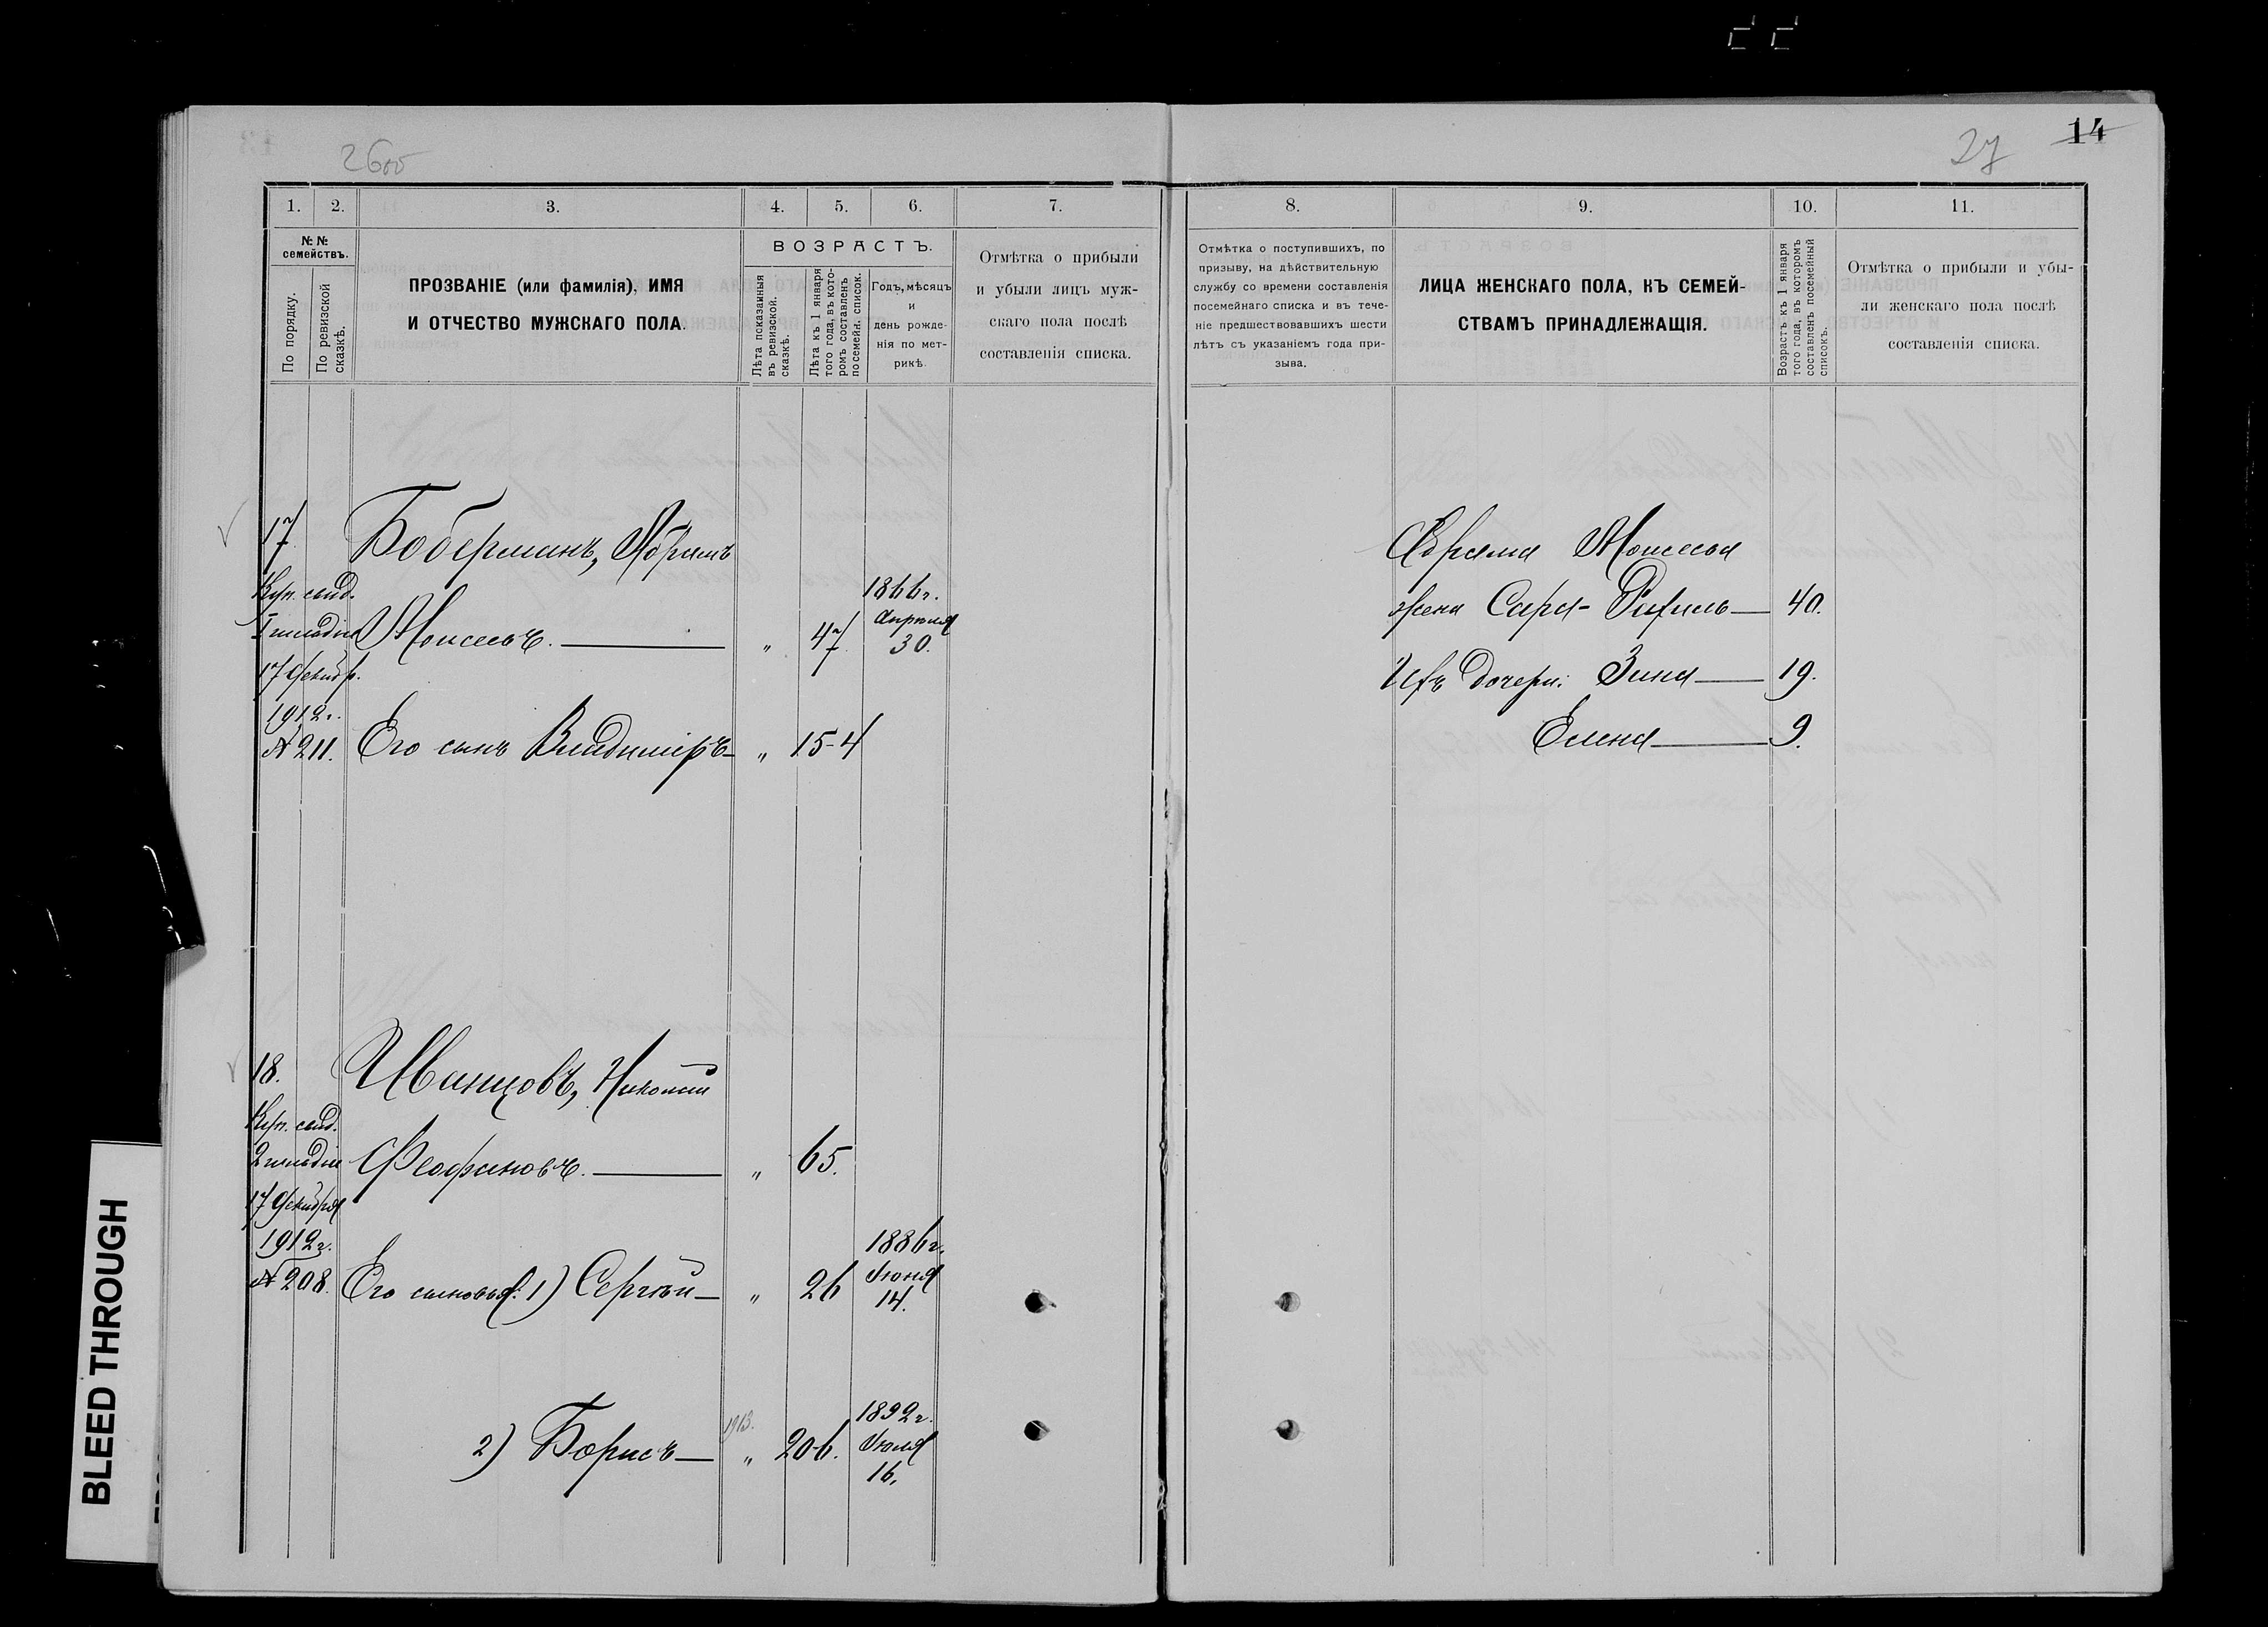 14
27
1. 2. 3. 4. 5. 6. 7. 8. 9. 10. 11.
№ №
семействъ.
По порядку.
По ревизской
сказкѣ.
ПРОЗВАНІЕ (или фамилія), ИМЯ
И ОТЧЕСТВО МУЖСКАГО ПОЛА.
ВОЗРАСТЪ.
Лѣта показанныя
въ ревизской.
сказкѣ.
Лѣта къ 1 января
того года, въ кото-
ромъ составленъ
посемейн. список.
Годъ, мѣсяцъ
и
день рожде-
нія по мет-
рикѣ.
Отмѣтка о прибыли
и убыли лицъ муж-
скаго пола послѣ
составленія списка.
Отмѣтка о поступившихъ, по
призыву, на дѣйствительную
службу со времени составленія
посемейнаго списка и въ тече-
ніе предшествовавшихъ шести
лѣтъ съ указаніемъ года при-
зыва.
ЛИЦА ЖЕНСКАГО ПОЛА, КЪ СЕМЕЙ-
СТВАМЪ ПРИНАДЛЕЖАЩІЯ.
Возрастъ къ 1 января
того года, въ которомъ
составленъ посемейный
списокъ.
Отмѣтка о прибыли и убы-
ли женскаго пола послѣ
составленія списка.
17
Куп. свид.
I гильдіи
17 декабр.
1912 г.
№ 211.
Боберманъ, Абрамъ
Моисеевъ. — „ 47 1866 г.
Апрѣля
30.
Его сынъ Владиміръ — „ 15-4
Абрама Моисеева
жена Сара-Рахиль — 40.
Ихъ дочери: Зина — 19.
Елена — 9.
18.
Куп. свид.
2 гильдіи
17 декабря
1912 г.
№ 208.
Иванцовъ, Николай
Феофановъ. — „ 65.
Его сыновья: 1) Сергѣй — „ 26 1886 г.
Іюня
14.
2) Борисъ — 1913. „ 20-6. 1892 г.
Іюля
16.
BLEED THROUGH